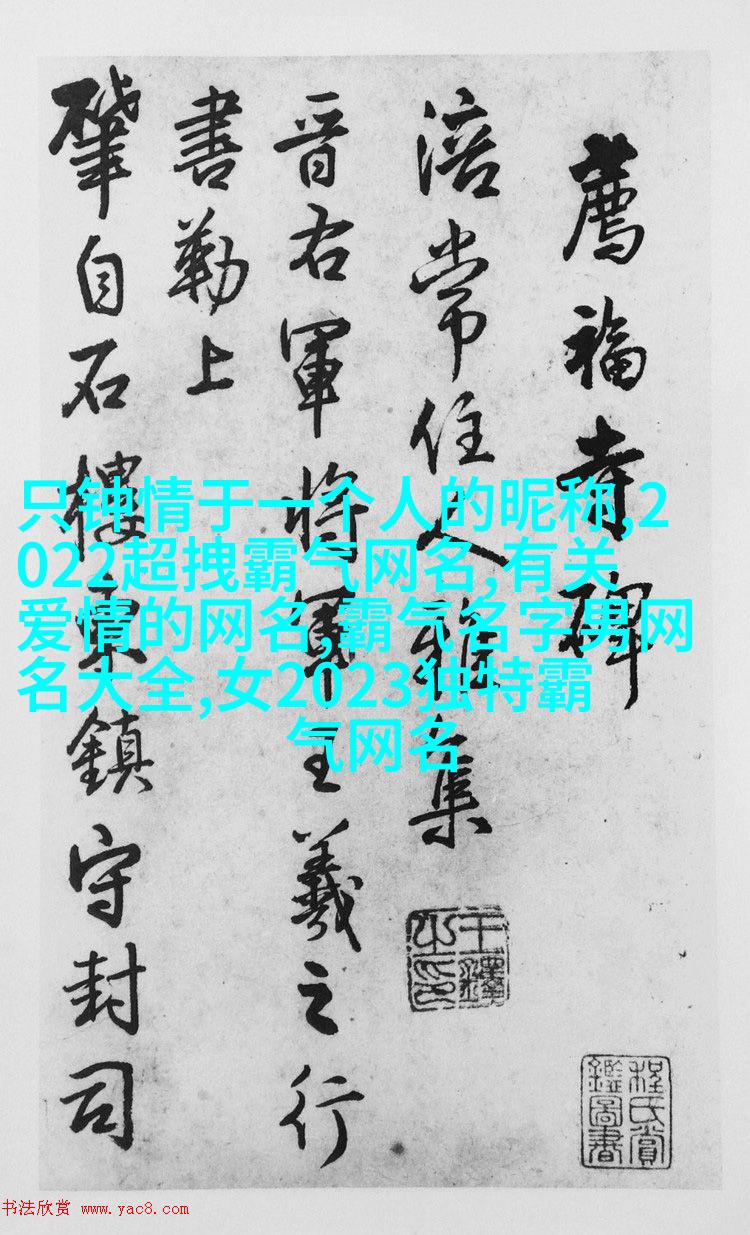 薦福寺碑
涪常住人集
晉右軍將軍王羲之行
書勒上
肇自石樓鎮守封司
王鐸之印
程氏賞鑑圖書
只钟情于一个人的昵称,2
022超拽霸气网名,有关
爱情的网名,霸气名字男网
名大全,女2023独特霸
气网名
书法欣赏 www.yac8.com